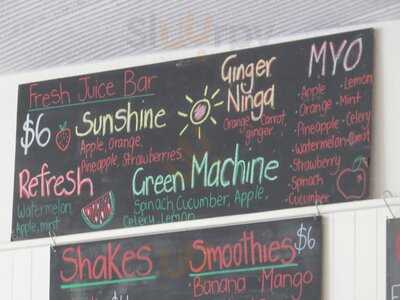 Fresh Juice Bar
$6
Sunshine
Apple, Orange,
Pineapple, Strawberries
Ginger
Ninja
Orange, Carrot,
ginger
MYO
• Apple • Lemon
• Orange • Mint
• Pineapple • Celery
• Watermelon
Strawberry
Spinach
Cucumber
Refresh
Watermelon
Apple, mint
Green Machine
Spinach Cucumber, Apple,
Celery, Lemon
Shakes
Smoothies $6
Banana Mango